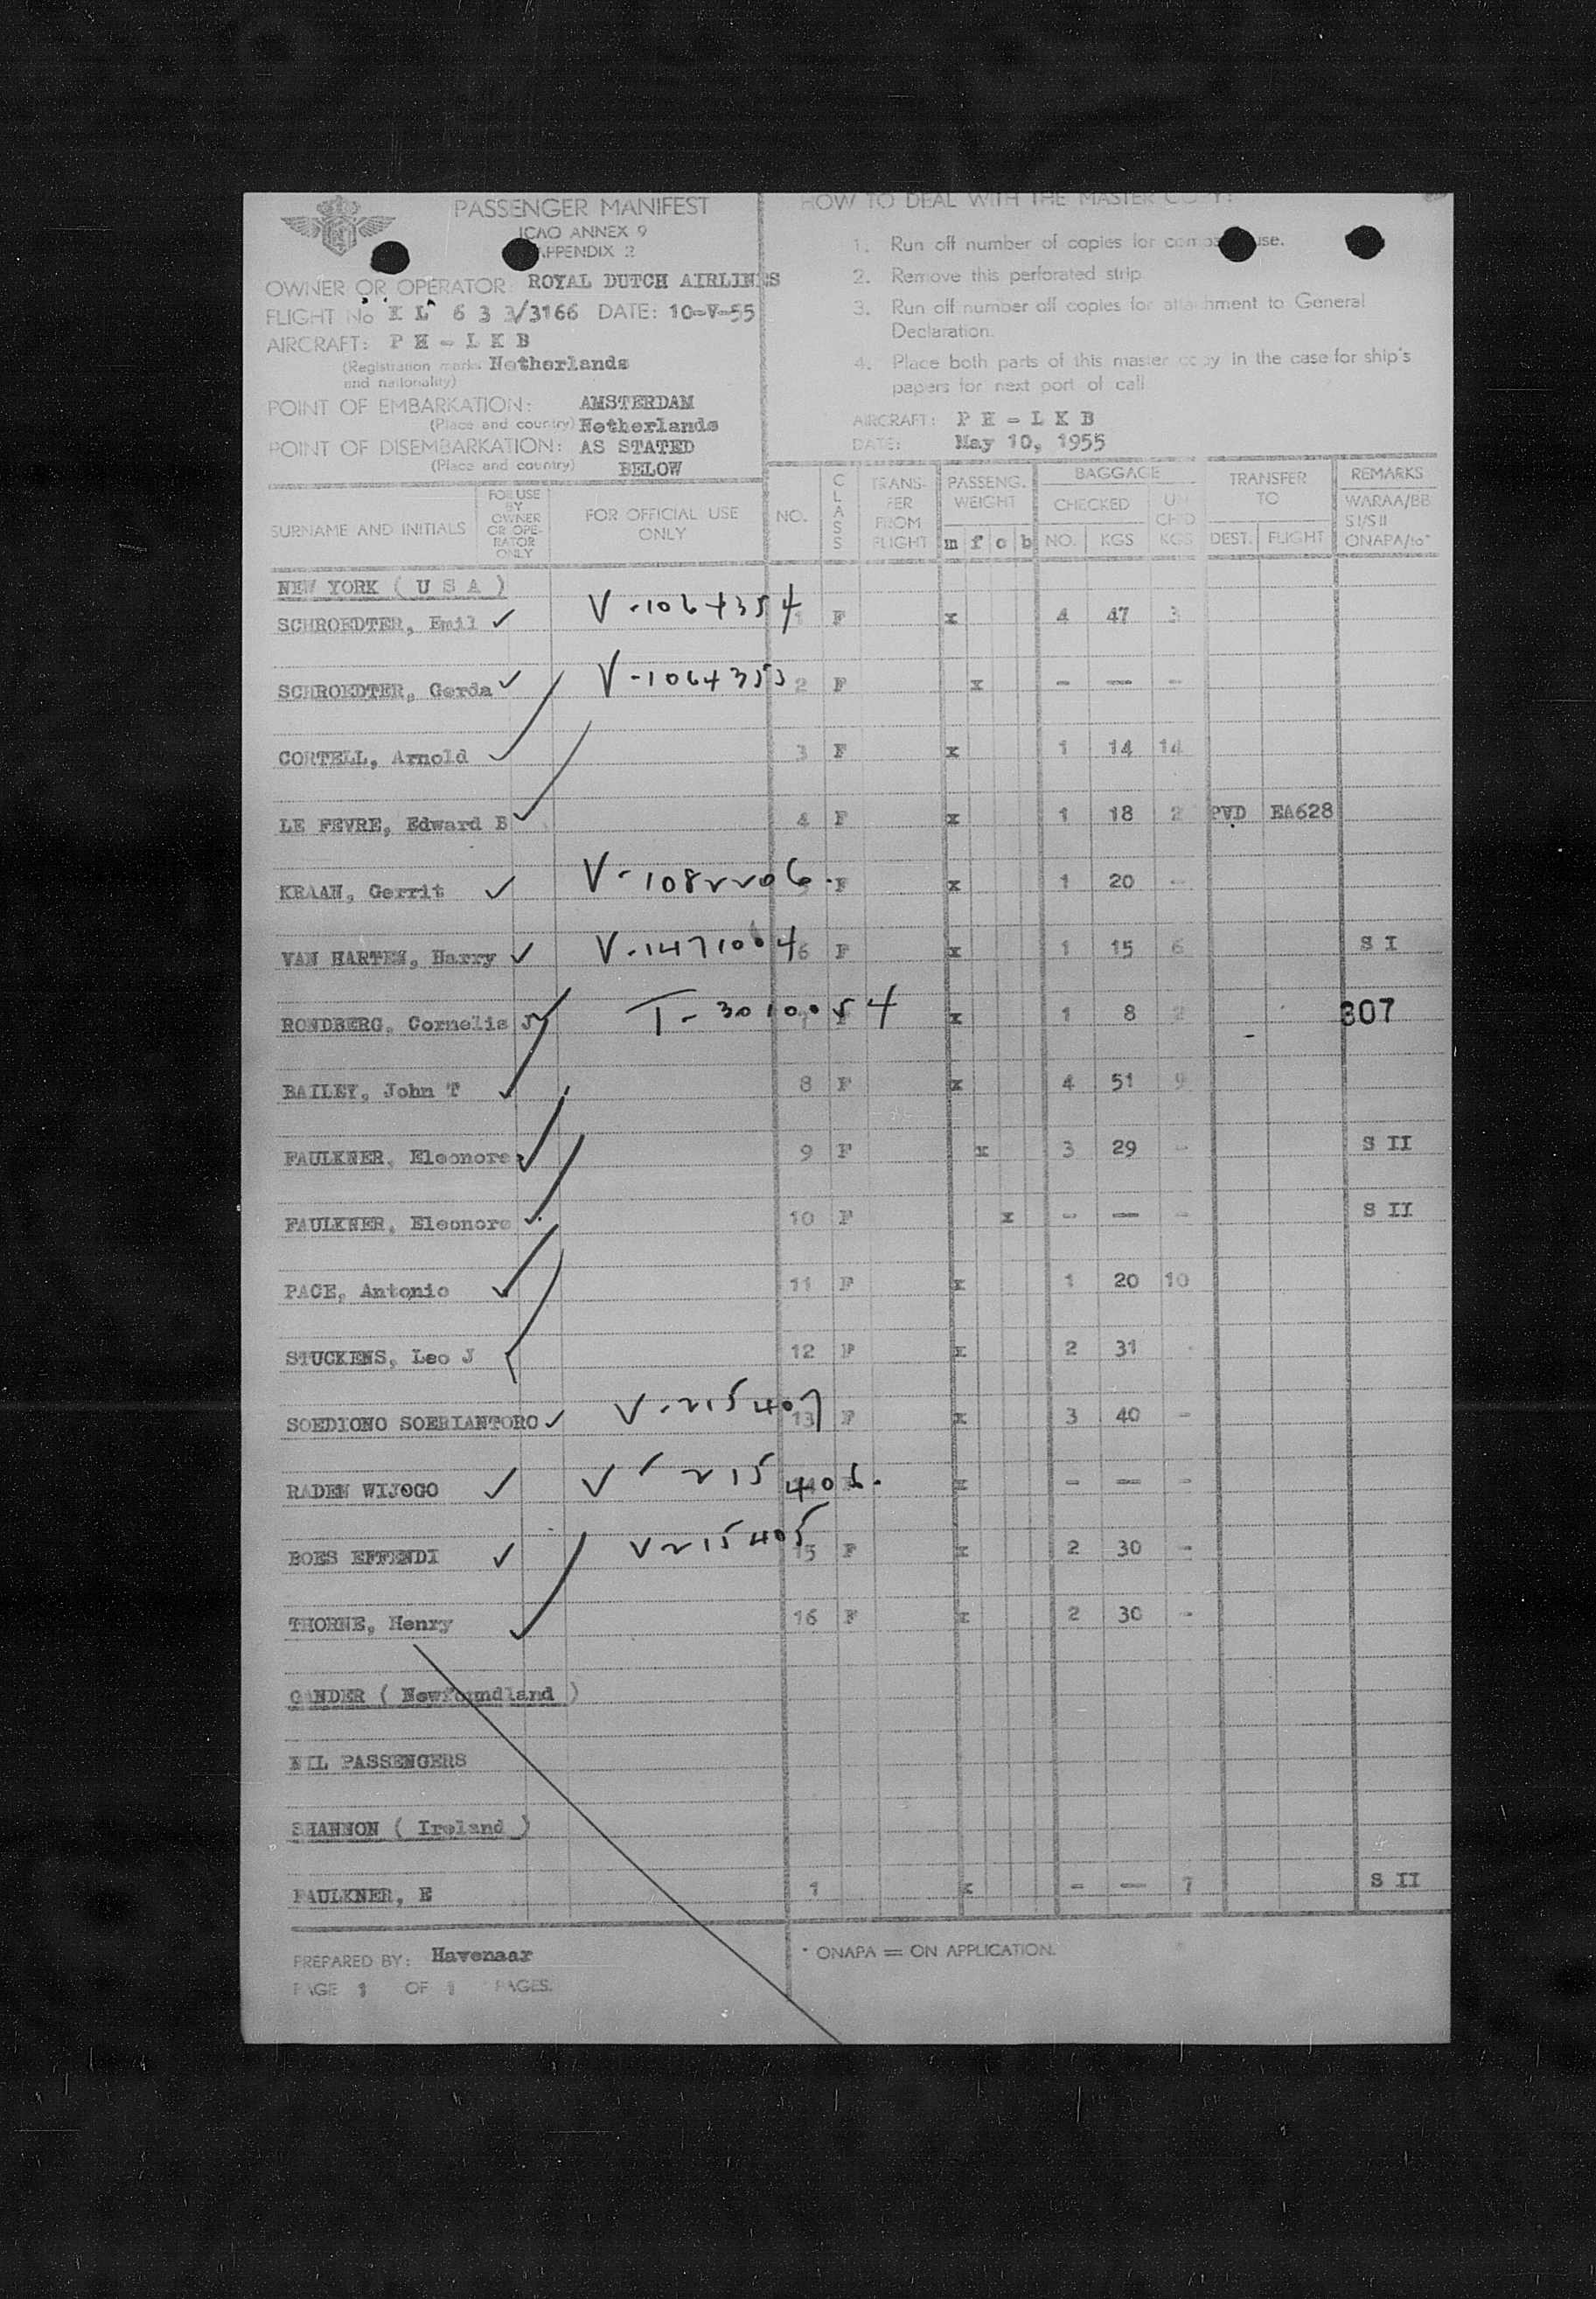 PASSENGER MANIFEST
ICAO ANNEX 9
APPENDIX 2
OWNER OR OPERATOR: ROYAL DUTCH AIRLINES
FLIGHT No K L 6 3 3/3166 DATE: 10-V-55
AIRCRAFT: P H - L K B
(Registration marks Netherlands
and nationality)
POINT OF EMBARKATION: AMSTERDAM
(Place and country) Netherlands
POINT OF DISEMBARKATION: AS STATED
(Place and country) BELOW
HOW TO DEAL WITH THE MASTER COPY:
1. Run off number of copies for use.
2. Remove this perforated strip
3. Run off number off copies for attachment to General
Declaration.
4. Place both parts of this master copy in the case for ship's
papers for next port of call
AIRCRAFT: P H - L K B
DATE: May 10, 1955
SURNAME AND INITIALS
FOR USE
BY
OWNER
OR OPE-
RATOR
ONLY
FOR OFFICIAL USE
ONLY
NO.
CLASS
TRANS-
FER
FROM
FLIGHT
PASSENG.
WEIGHT
m f c b
BAGGAGE
CHECKED
NO. KGS
UN
CH'D
KGS
TRANSFER
TO
DEST. FLIGHT
REMARKS
WARAA/BB
S I/S II
ONAPA/to*
NEW YORK ( U S A )
SCHROEDTER, Emil V-1064354 1 F x 4 47 3
SCHROEDTER, Gerda V-1064353 2 F x - — -
CORTELL, Arnold 3 F x 1 14 14
LE FEVRE, Edward B 4 F x 1 18 2 PVD EA628
KRAAN, Gerrit V-1082206. 5 F x 1 20 -
VAN HARTEN, Harry V-1471004 6 F x 1 15 6 S I
RONDBERG, Cornelis J T-3010054 7 F x 1 8 2 307
BAILEY, John T 8 F x 4 51 9
FAULKNER, Eleonore 9 F x 3 29 - S II
FAULKNER, Eleonore 10 F x - — - S II
PACE, Antonio 11 F x 1 20 10
STUCKENS, Leo J 12 F x 2 31 -
SOEDIONO SOERIANTORO V-215407 13 F x 3 40 -
RADEN WIJOGO V-215406. x - — -
BOES EFFENDI V215405 15 F x 2 30 -
THORNE, Henry 16 F x 2 30 -
GANDER ( Newfoundland )
NIL PASSENGERS
SHANNON ( Ireland )
FAULKNER, E 1 x - — 7 S II
PREPARED BY: Havenaar
PAGE 1 OF 1 PAGES.
* ONAPA = ON APPLICATION.